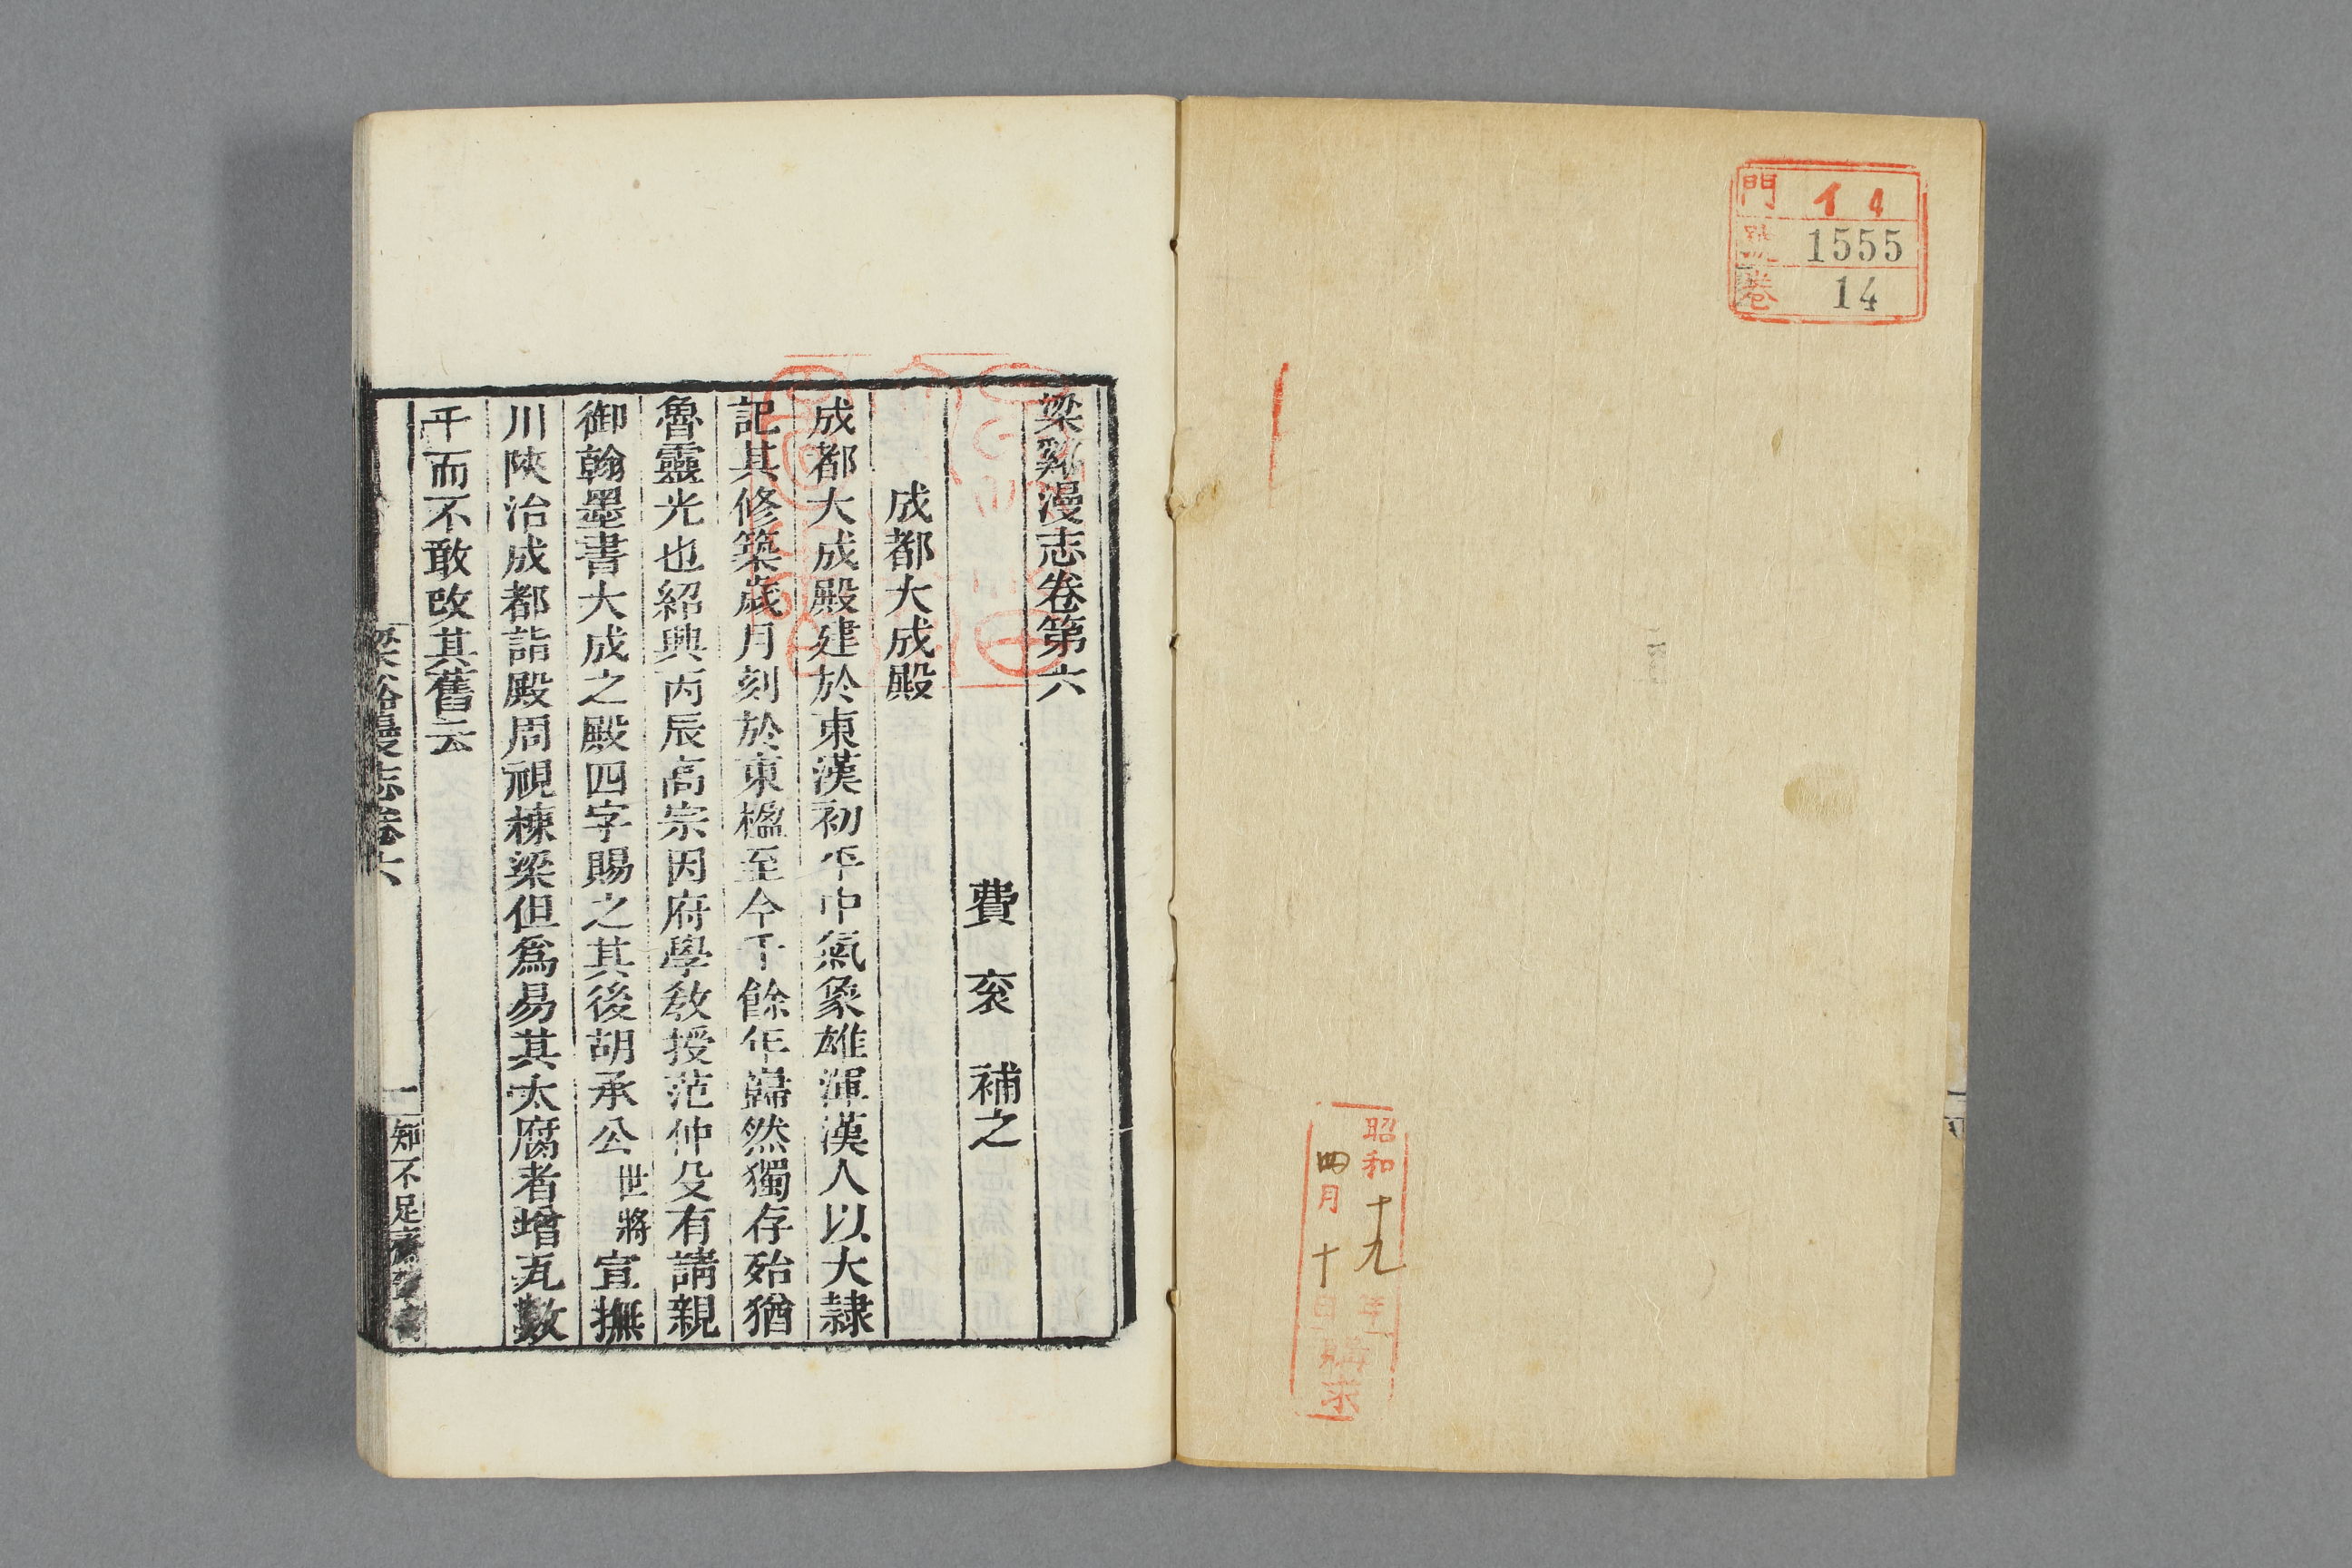 門 イ4
號 1555
卷 14
昭和十九年
四月十日
購求
梁谿漫志卷第六
費袞補之
成都大成殿
成都大成殿建於東漢初平中氣象雄渾漢人以大隸
記其修築歲月刻於東楹至今千餘年巋然獨存殆猶
魯靈光也紹興丙辰高宗因府學敎授范仲殳有請親
御翰墨書大成之殿四字賜之其後胡承公世將宣撫
川陝治成都詣殿周視棟梁但爲易其太腐者增瓦數
千而不敢改其舊云
梁谿漫志卷六
一
知不足齋叢書